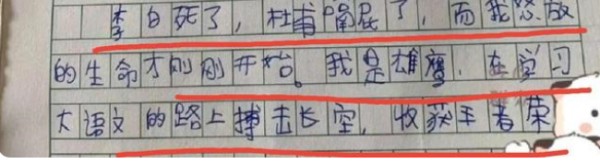 李白死了，杜甫嗝屁了，而我怒放
的生命才刚刚开始。我是雄鹰，在学习
大语文的路上搏击长空，收获半着荣